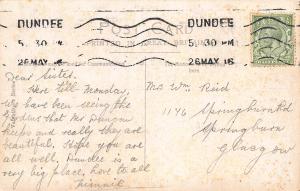 DUNDEE DUNDEE
5. 30 PM 5. 30 PM
26 MAY 16 26 MAY 16
POST CARD
PRINTED IN GREAT BRITAIN
Dear Sister,
Here till Monday,
We have been seeing the
that Mr Duncan
keeps and really they are
beautiful. Hope you are
all well. Dundee is a
very big place, love to all
Mrs Wm Reid
1146 Springburn Rd
Springburn
Glasgow